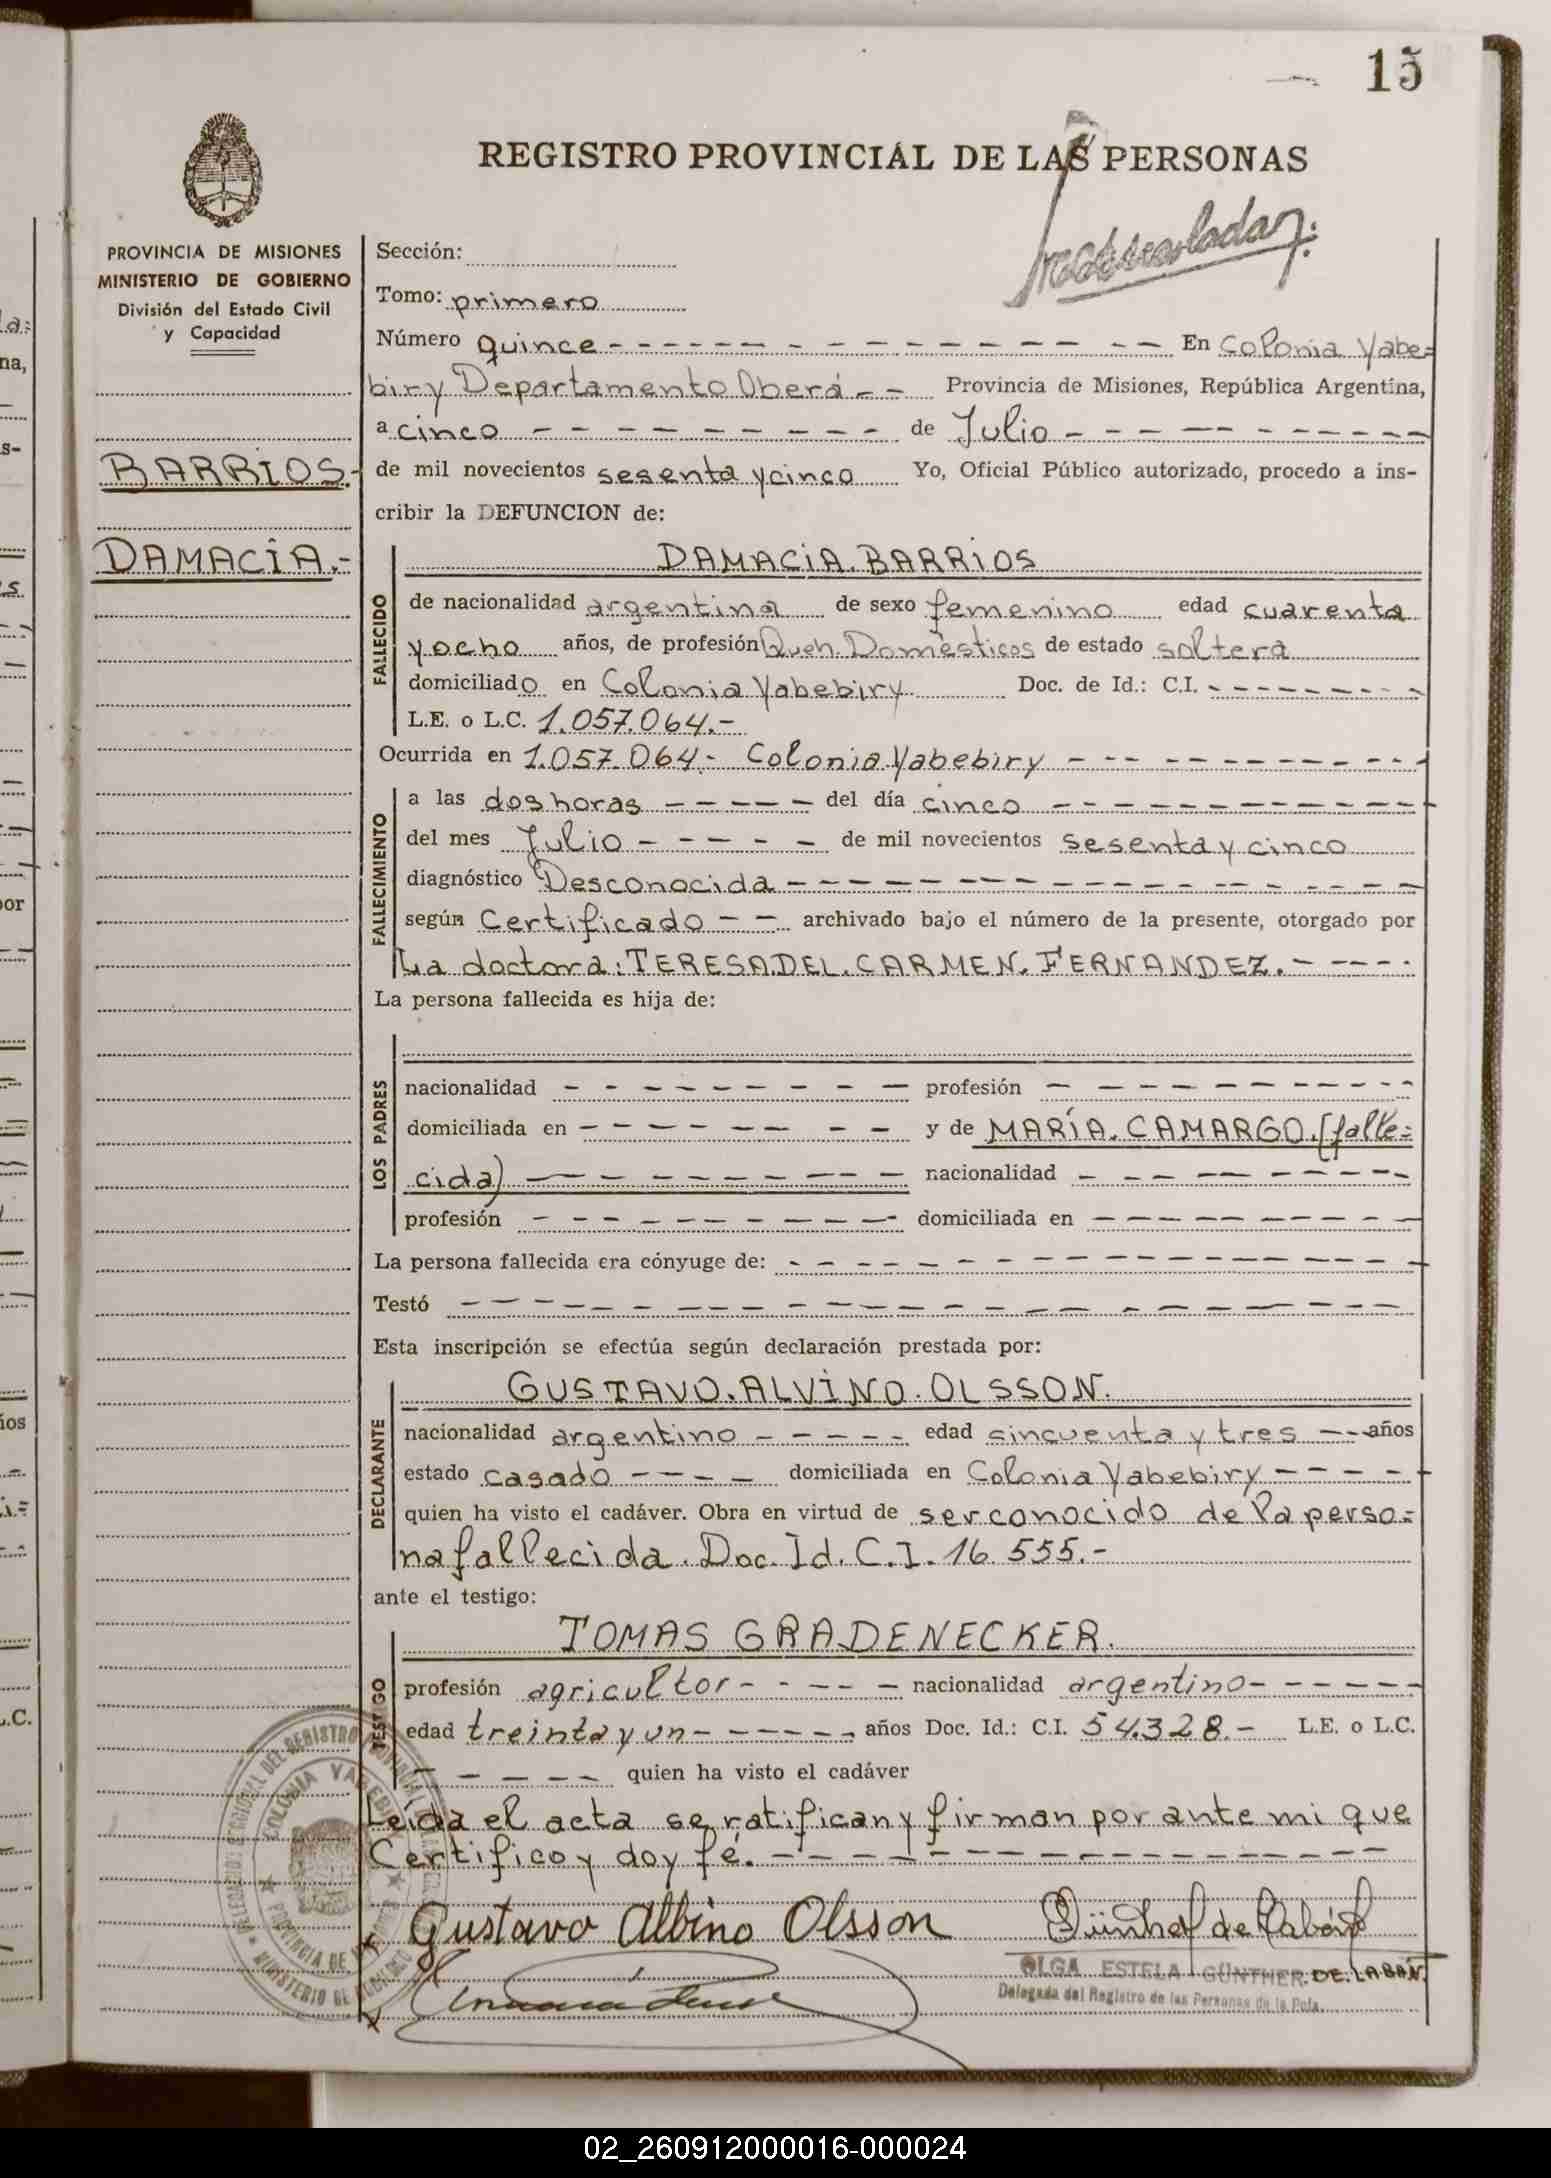 15
REGISTRO PROVINCIAL DE LAS PERSONAS
PROVINCIA DE MISIONES
MINISTERIO DE GOBIERNO
División del Estado Civil
y Capacidad
BARRIOS.-
DAMACIA.-
Sección:
Tomo: primero
Número quince - - - - - - - - - - - - - - En Colonia Yabe=
biry Departamento Oberá - - Provincia de Misiones, República Argentina,
a cinco - - - - - - - - - - de Julio - - - - - - - - - -
de mil novecientos sesenta y cinco Yo, Oficial Público autorizado, procedo a ins-
cribir la DEFUNCION de:
FALLECIDO
DAMACIA. BARRIOS
de nacionalidad argentina de sexo femenino edad cuarenta
y ocho años, de profesión Queh. Domésticos de estado soltera
domiciliado en Colonia Yabebiry Doc. de Id.: C.I. - - - - - - - -
L.E. o L.C. 1.057.064.-
Ocurrida en 1.057.064.- Colonia Yabebiry - - - - - - - - - - -
FALLECIMIENTO
a las dos horas - - - - - del día cinco - - - - - - - - - - -
del mes Julio - - - - - de mil novecientos sesenta y cinco
diagnóstico Desconocida - - - - - - - - - - - - - - - -
según Certificado - - archivado bajo el número de la presente, otorgado por
La doctora: TERESA.DEL.CARMEN. FERNANDEZ. - - - - -
La persona fallecida es hija de:
LOS PADRES
nacionalidad - - - - - - - - - profesión - - - - - - - - - -
domiciliada en - - - - - - - - y de MARÍA. CAMARGO. (falle=
cida) - - - - - - - - - nacionalidad - - - - - - - -
profesión - - - - - - - - - - domiciliada en - - - - - - - -
La persona fallecida era cónyuge de: - - - - - - - - - - - - - - -
Testó - - - - - - - - - - - - - - - - - - - - - -
Esta inscripción se efectúa según declaración prestada por:
DECLARANTE
GUSTAVO. ALVINO. OLSSON.
nacionalidad argentino - - - - - edad sincuenta y tres - - años
estado casado - - - - domiciliada en Colonia Yabebiry - - - - -
quien ha visto el cadáver. Obra en virtud de ser conocido de la perso=
na fallecida. Doc. Id. C.I. 16.555.-
ante el testigo:
TESTIGO
TOMAS GRADENECKER.
profesión agricultor - - - - - nacionalidad argentino - - - - - -
edad treinta y un - - - - - - años Doc. Id.: C.I. 54.328.- L.E. o L.C.
- - - - - - quien ha visto el cadáver
Leída el acta se ratifican y firman por ante mi que
Certifico y doy fé. - - - - - - - - - - - - - - - - -
Gustavo Albino Olsson
Günther de Labán
OLGA ESTELA GÜNTHER DE.LABAN.
Delegada del Registro de las Personas de la Pcia.
COLONIA YABEBIRY
PROVINCIA DE MISIONES
MINISTERIO DE GOBIERNO
02_260912000016-000024